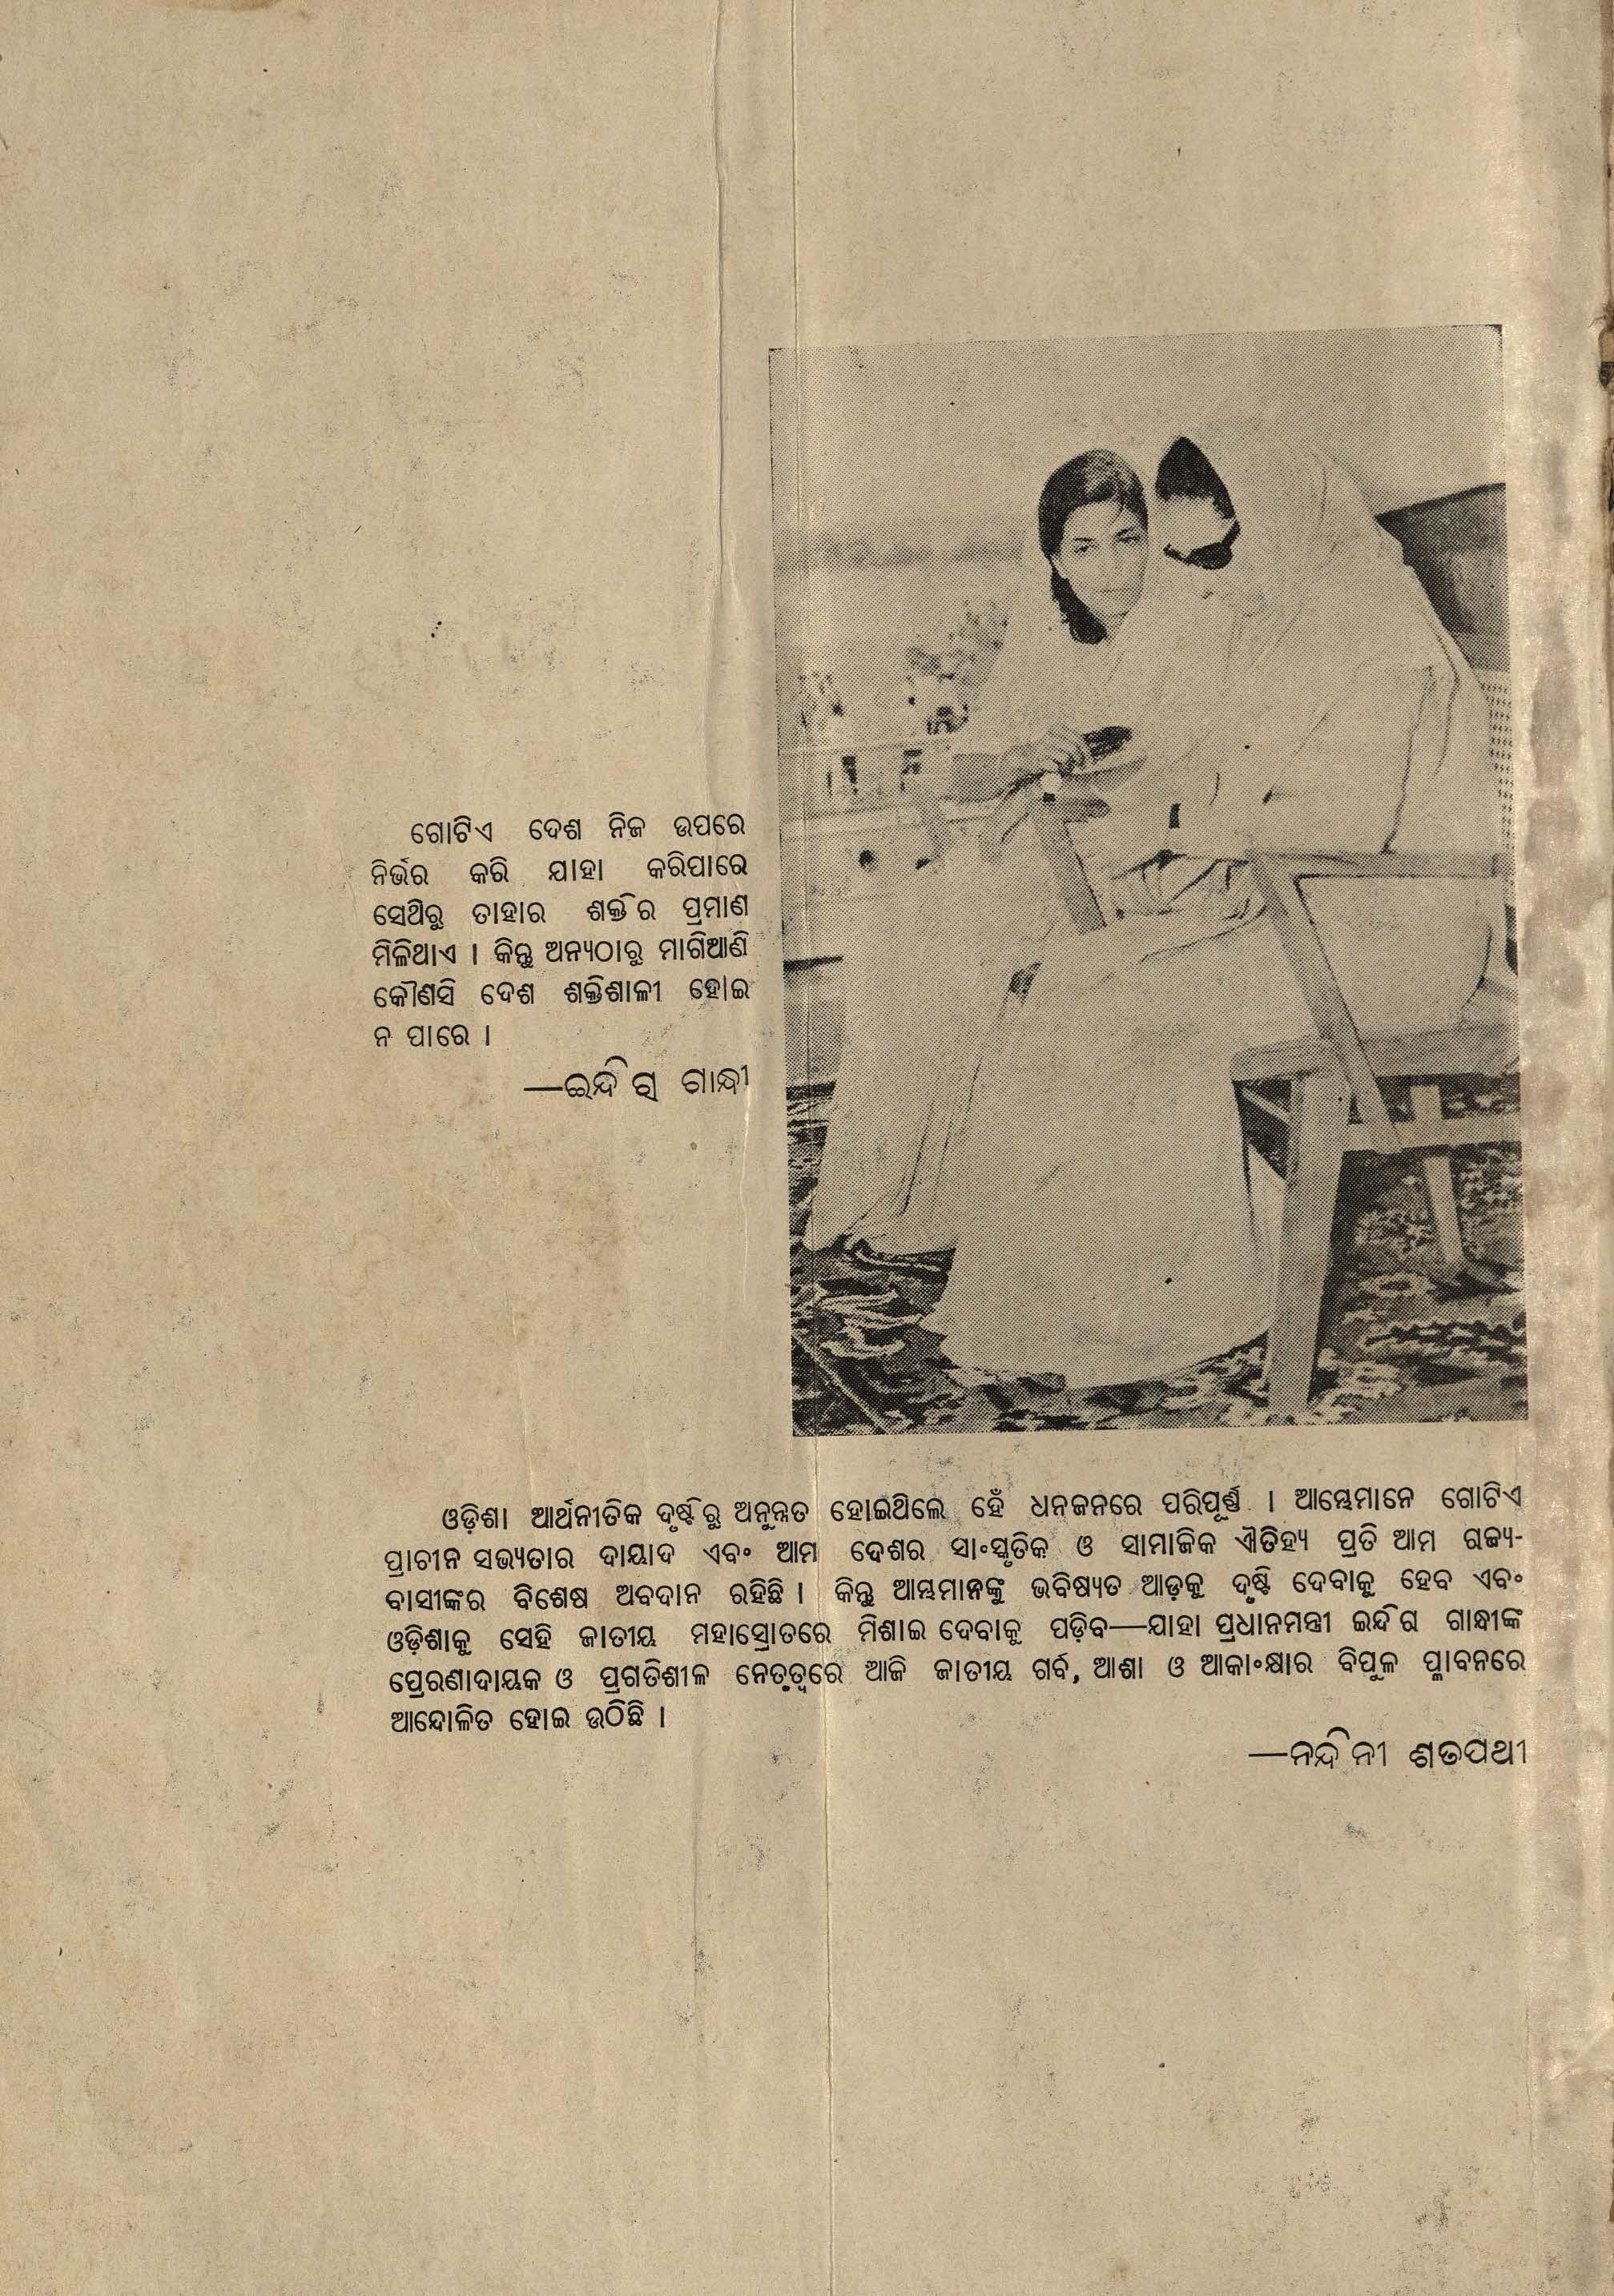 ଗୋଟିଏ ଦେଶ ନିଜ ଉପରେ
ନିର୍ଭର କରି ଯାହା କରିପାରେ
ସେଥିରୁ ତାହାର ଶକ୍ତିର ପ୍ରମାଣ
ମିଳିଥାଏ । କିନ୍ତୁ ଅନ୍ୟଠାରୁ ମାଗିଆଣି
କୌଣସି ଦେଶ ଶକ୍ତିଶାଳୀ ହୋଇ
ନ ପାରେ ।
—ଇନ୍ଦିରା ଗାନ୍ଧୀ
ଓଡ଼ିଶା ଆର୍ଥନୀତିକ ଦୃଷ୍ଟିରୁ ଅନୁନ୍ନତ ହୋଇଥିଲେ ହେଁ ଧନଜନରେ ପରିପୂର୍ଣ୍ଣ । ଆମ୍ଭେମାନେ ଗୋଟିଏ
ପ୍ରାଚୀନ ସଭ୍ୟତାର ଦାୟାଦ ଏବଂ ଆମ ଦେଶର ସାଂସ୍କୃତିକ ଓ ସାମାଜିକ ଐତିହ୍ୟ ପ୍ରତି ଆମ ରାଜ୍ୟ-
ବାସୀଙ୍କର ବିଶେଷ ଅବଦାନ ରହିଛି । କିନ୍ତୁ ଆମ୍ଭମାନଙ୍କୁ ଭବିଷ୍ୟତ ଆଡ଼କୁ ଦୃଷ୍ଟି ଦେବାକୁ ହେବ ଏବଂ
ଓଡ଼ିଶାକୁ ସେହି ଜାତୀୟ ମହାସ୍ରୋତରେ ମିଶାଇ ଦେବାକୁ ପଡ଼ିବ—ଯାହା ପ୍ରଧାନମନ୍ତ୍ରୀ ଇନ୍ଦିରା ଗାନ୍ଧୀଙ୍କ
ପ୍ରେରଣାଦାୟକ ଓ ପ୍ରଗତିଶୀଳ ନେତୃତ୍ୱରେ ଆଜି ଜାତୀୟ ଗର୍ବ, ଆଶା ଓ ଆକାଂକ୍ଷାର ବିପୁଳ ପ୍ଳାବନରେ
ଆନ୍ଦୋଳିତ ହୋଇ ଉଠିଛି ।
—ନନ୍ଦିନୀ ଶତପଥୀ